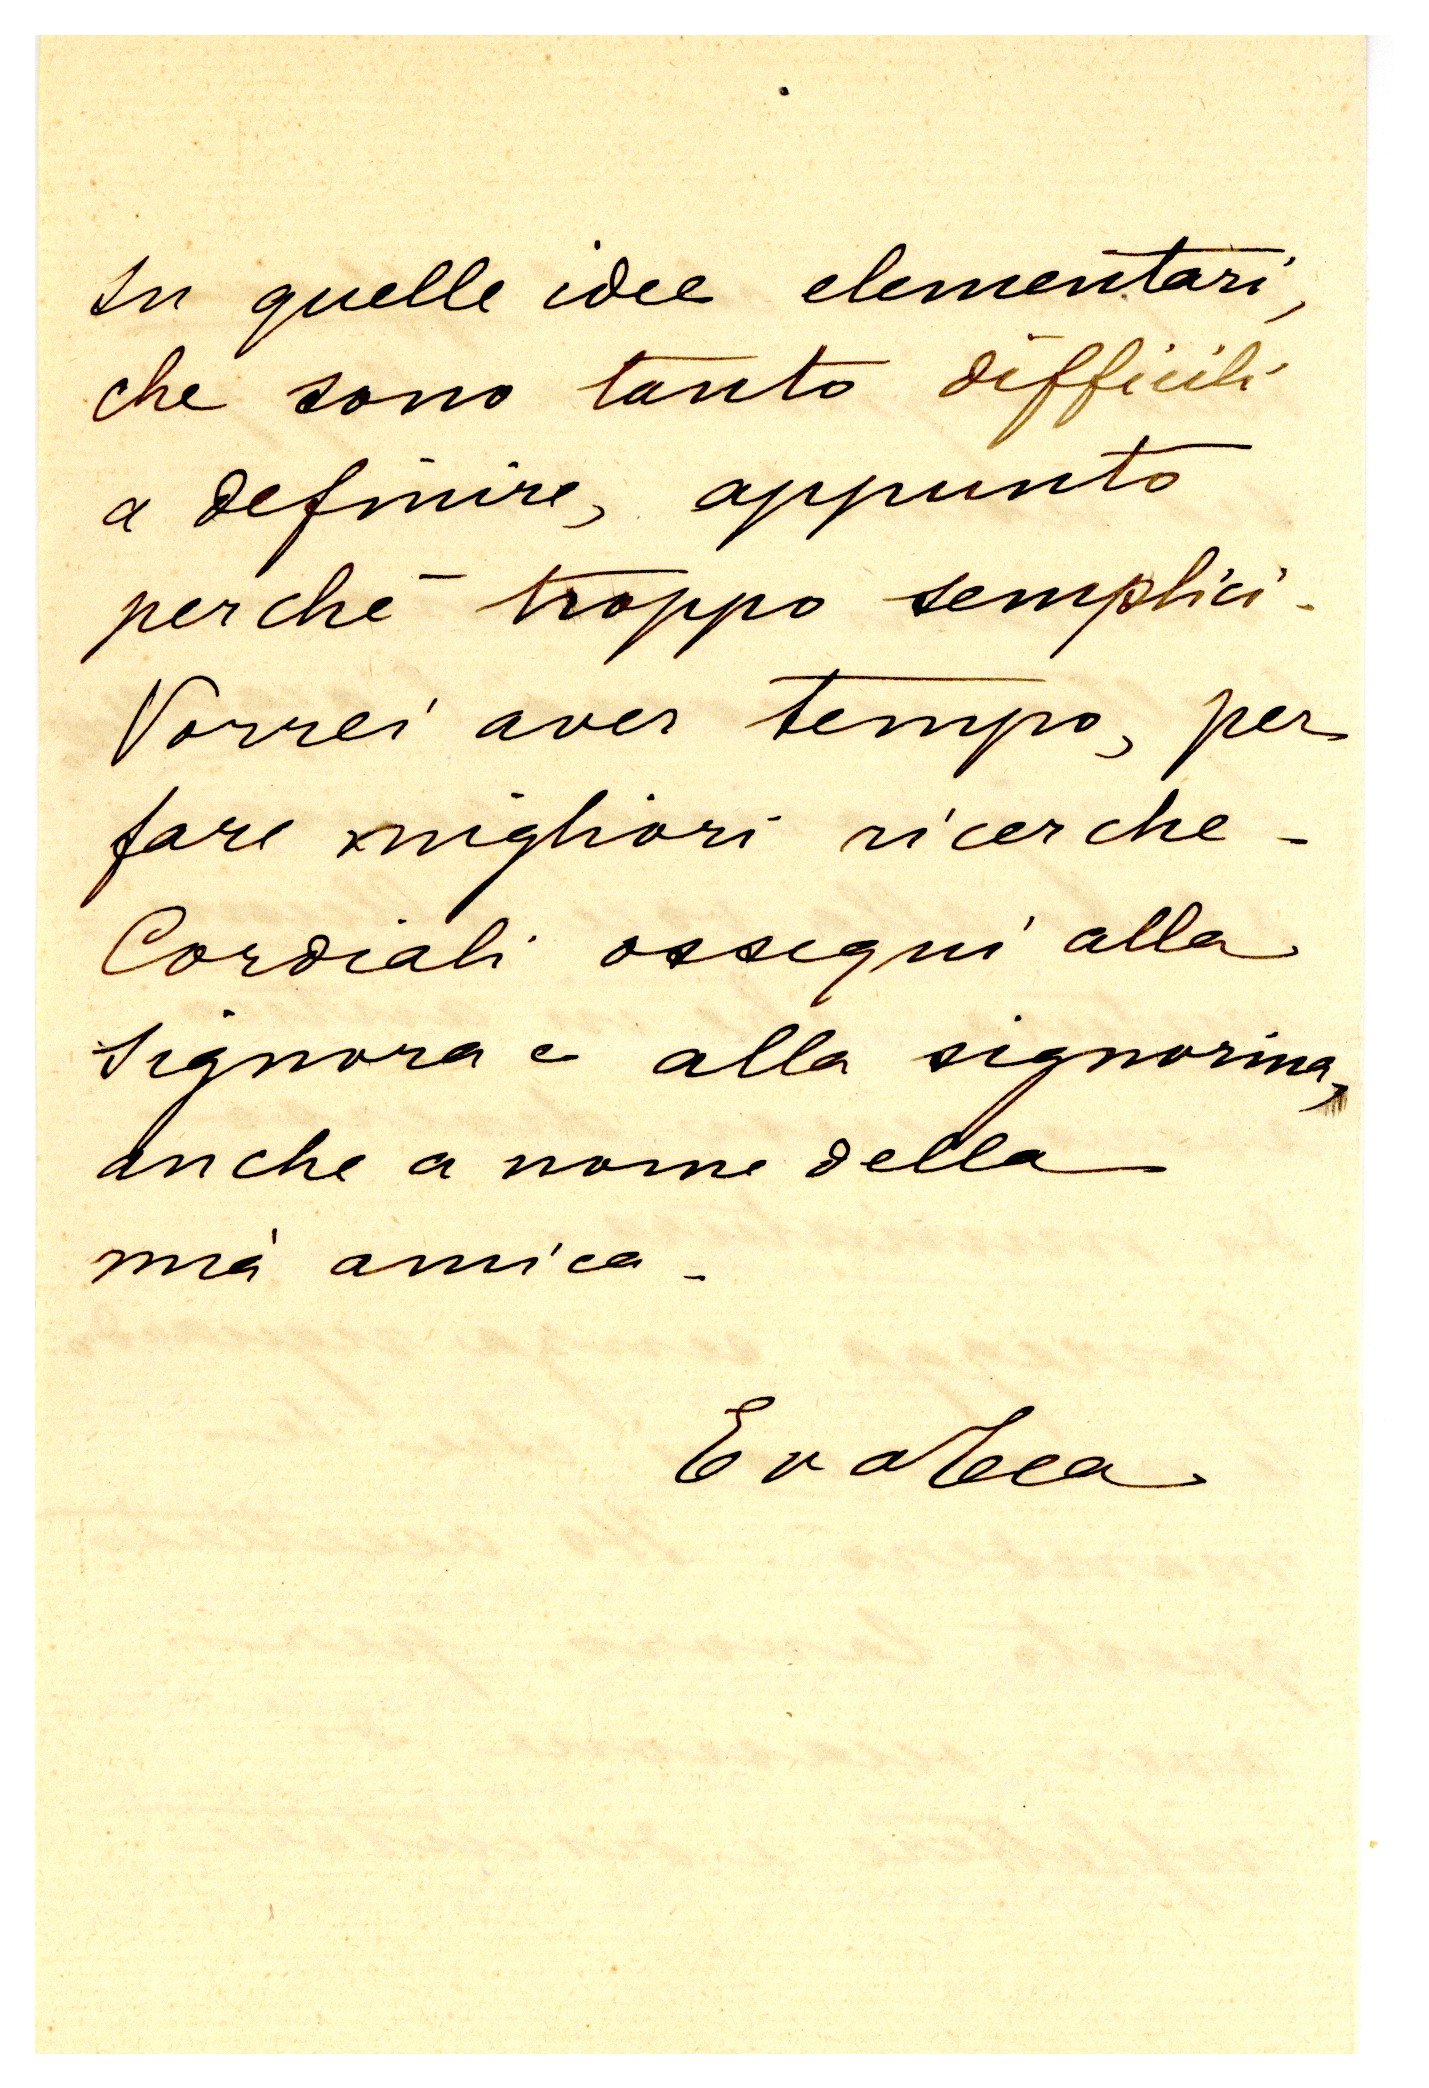 su quelle idee elementari,
che sono tanto difficili
a definire, appunto
perchè troppo semplici.
Vorrei aver tempo, per
fare migliori ricerche -
Cordiali ossequi alla
Signora e alla signorina,
anche a nome della
mia amica -
Eva Tea